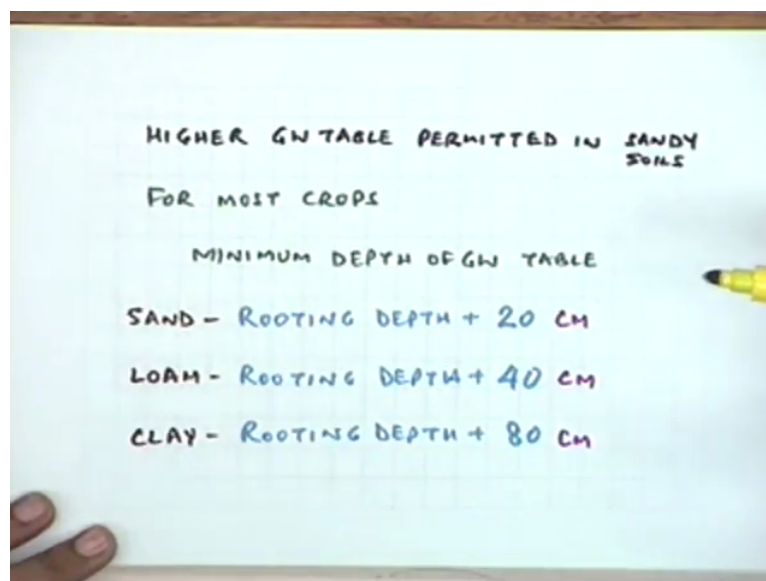 HIGHER GW TABLE PERMITTED IN SANDY SOILS
FOR MOST CROPS
MINIMUM DEPTH OF GW TABLE
SAND - ROOTING DEPTH + 20 CM
LOAM - ROOTING DEPTH + 40 CM
CLAY - ROOTING DEPTH + 80 CM